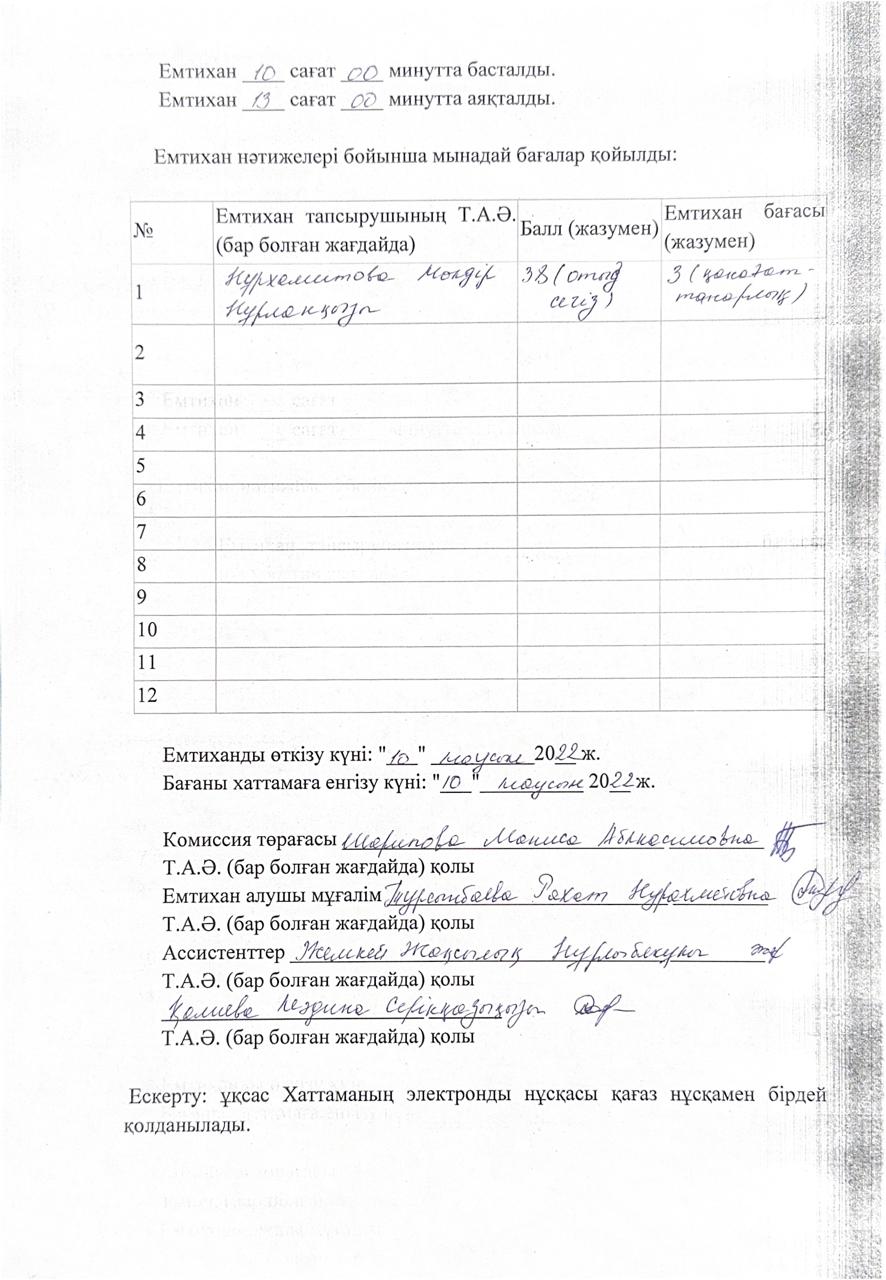 Емтихан 10 сағат 00 минутта басталды.
Емтихан 13 сағат 00 минутта аяқталды.
Емтихан нәтижелері бойынша мынадай бағалар қойылды:
№ Емтихан тапсырушының Т.А.Ә. (бар болған жағдайда) Балл (жазумен) Емтихан бағасы (жазумен)
1 Нурхамитова Мөлдір Нұрланқызы 38 (отыз сегіз) 3 (қанағат-танарлық)
2
3
4
5
6
7
8
9
10
11
12
Емтиханды өткізу күні: "10" маусым 2022ж.
Бағаны хаттамаға енгізу күні: "10" маусым 2022ж.
Комиссия төрағасы Шарипова Маниса Абикасимовна
Т.А.Ә. (бар болған жағдайда) қолы
Емтихан алушы мұғалім Турсынбаева Рахат Нурахметовна
Т.А.Ә. (бар болған жағдайда) қолы
Ассистенттер Жемкей Жақсылық
Т.А.Ә. (бар болған жағдайда) қолы
Қалиева Серікқазықызы
Т.А.Ә. (бар болған жағдайда) қолы
Ескерту: ұқсас Хаттаманың электронды нұсқасы қағаз нұсқамен бірдей
қолданылады.